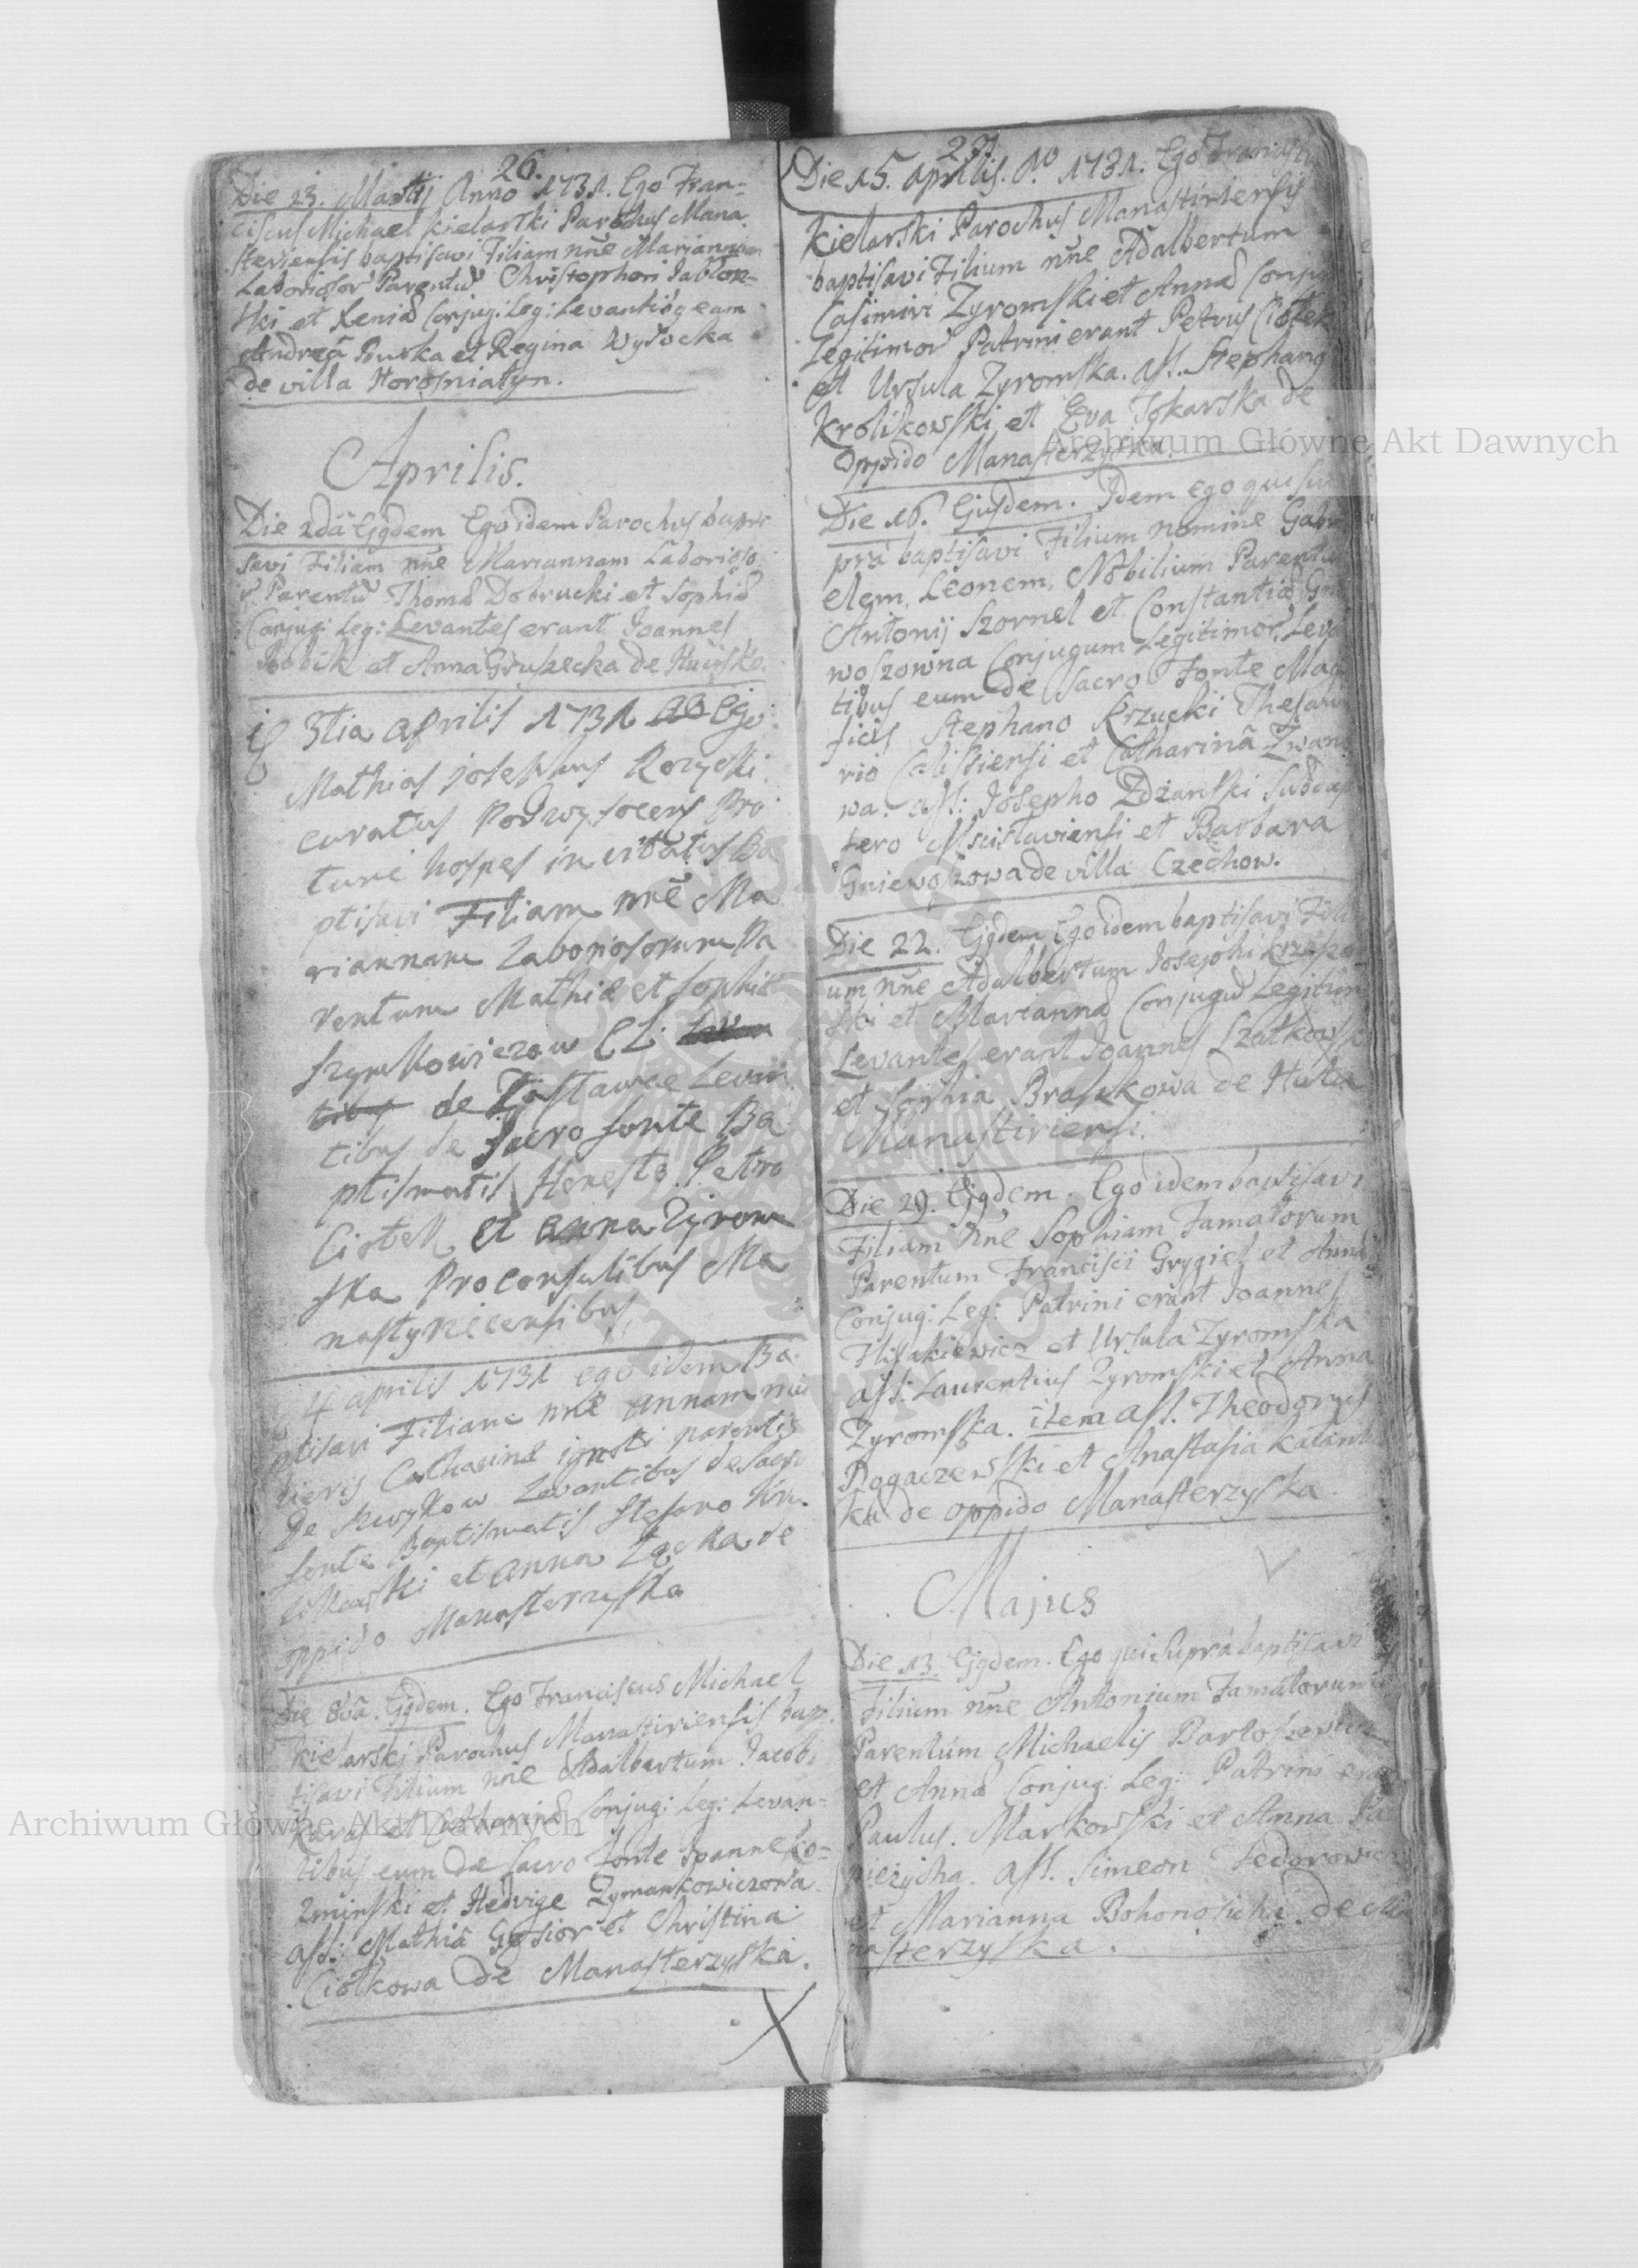 26.
Die 23. Martij Anno 1731. Ego Fran=
ciscus Michael Kielarski Parochus Mana
steriensis baptisavi Filiam nne Mariannam
Laborioso Parentu Christophori Jablon=
ski et Xenia Conjug: Leg: Levantibq eam
Andrea Burka et Regina Wysocka
de villa Horosniatyn.
Aprilis.
Die 2da Ejqdem Ego idem Parochus bapti
savi Filiam nne Mariannam Laborioso
r Parentu Thoma Dobrucki et Sophia
Conjug: Leg: Levantes erant Joannes
Bobik et Anna Gruszecka de
3tia Aprilis 1731 Ego
Mathias Josephus Rozycki
curatus Podwysocens
hospes invitatus Ba
ptisavi Filiam nne Ma
riannam Laboriosorum Pa
rentum Mathiæ et Sophiæ
Szymkowiczow CL:
de Zastawce Levan
tibus de sacro fonte Ba
ptismatis Honesto Petro
Ciołek et Anna Zyrom
ska Proconsulibus Ma
nastyricensibus
4 aprilis 1731 ego idem Ba
ptisavi Filiam nne Annam mu
lieris Catharinæ ignoti parentis
de Levantibus de Sacro
fonte Baptismatis Stefano Kro
likowski et Anna Łącka de
oppido Manasterzyska
Die 8va. Ejqdem. Ego Franciscus Michael
Kielarski Parochus Manastiriensis bap
tisavi Filium nne Adalbertum Jacobi
Karas et Catharina Conjug: Leg: Levan=
tibus eum de sacro Fonte Joanne Ko=
zminski et Hedvige Zymankowiczowa
ass: Mathia Gąsior et Christina
Ciołkowa de Manasterzyska.
27
Die 15. Aprilis. Ao 1731. Ego Francisc
Kielarski Parochus Manastiriensis
baptisavi Filium nne Adalbertum
Casimiri Zyromski et Anna Conju
Legitimor Patrini erant Petrus Ciołek
et Ursula Zyromska. ass. Stephano
Krolikowski et Eva Tokarska de
Oppido Manasterzyska.
Die 16. Ejusdem. Idem ego qui su
pra baptisavi Filium nomine Gabri
elem, Leonem, Nobilium Parentu
Antonij Szornel et Constantia Gnie
woszowna Conjugum Legitimor, Levan
tibus eum de Sacro Fonte Magni
ficis Stephano Krzucki Thesaura
rio Calisiensi et Catharina Zwan
wa. ass: Josepho Zdzanski Subdap
fero Mscislaviensi et Barbara
Gniewoszowa de villa Czechow.
Die 22. Ejqdem Ego idem baptisavi Fili
um nne Adalbertum Josephi
ski et Marianna Conjugu Legitim
Levantes erant Joannes Szatkowski
et Sophia Braszkowa de Huta
Manastiriensi.
Die 29. Ejqdem. Ego idem baptisavi
Filiam nne Sophiam Famatorum
Parentum Francisci Grygiel et Anna
Conjug: Leg: Patrini erant Joannes
Iliszkiewicz et Ursula Zyromska
ass: Laurentius Zyromski et Anna
Zyromska. item ass. Theodorus
Rogaczewski et Anastasia
ka de oppido Manasterzyska.
Majus
Die 13. Ejqdem. Ego qui Supra baptisavi
Filium nne Antonium Famatorum
Parentum Michaelis Bartoszewicz
et Anna Conjug: Leg: Patrini era
Paulus. Markowski et Anna
ass. Simeon Fedorowicz
et Marianna Bohonosicha de Ma
nasterzyska.
Archiwum Główne Akt Dawnych
Archiwum Główne Akt Dawnych